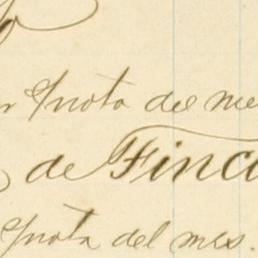 Quota del me
de Finca
Quota del mes.